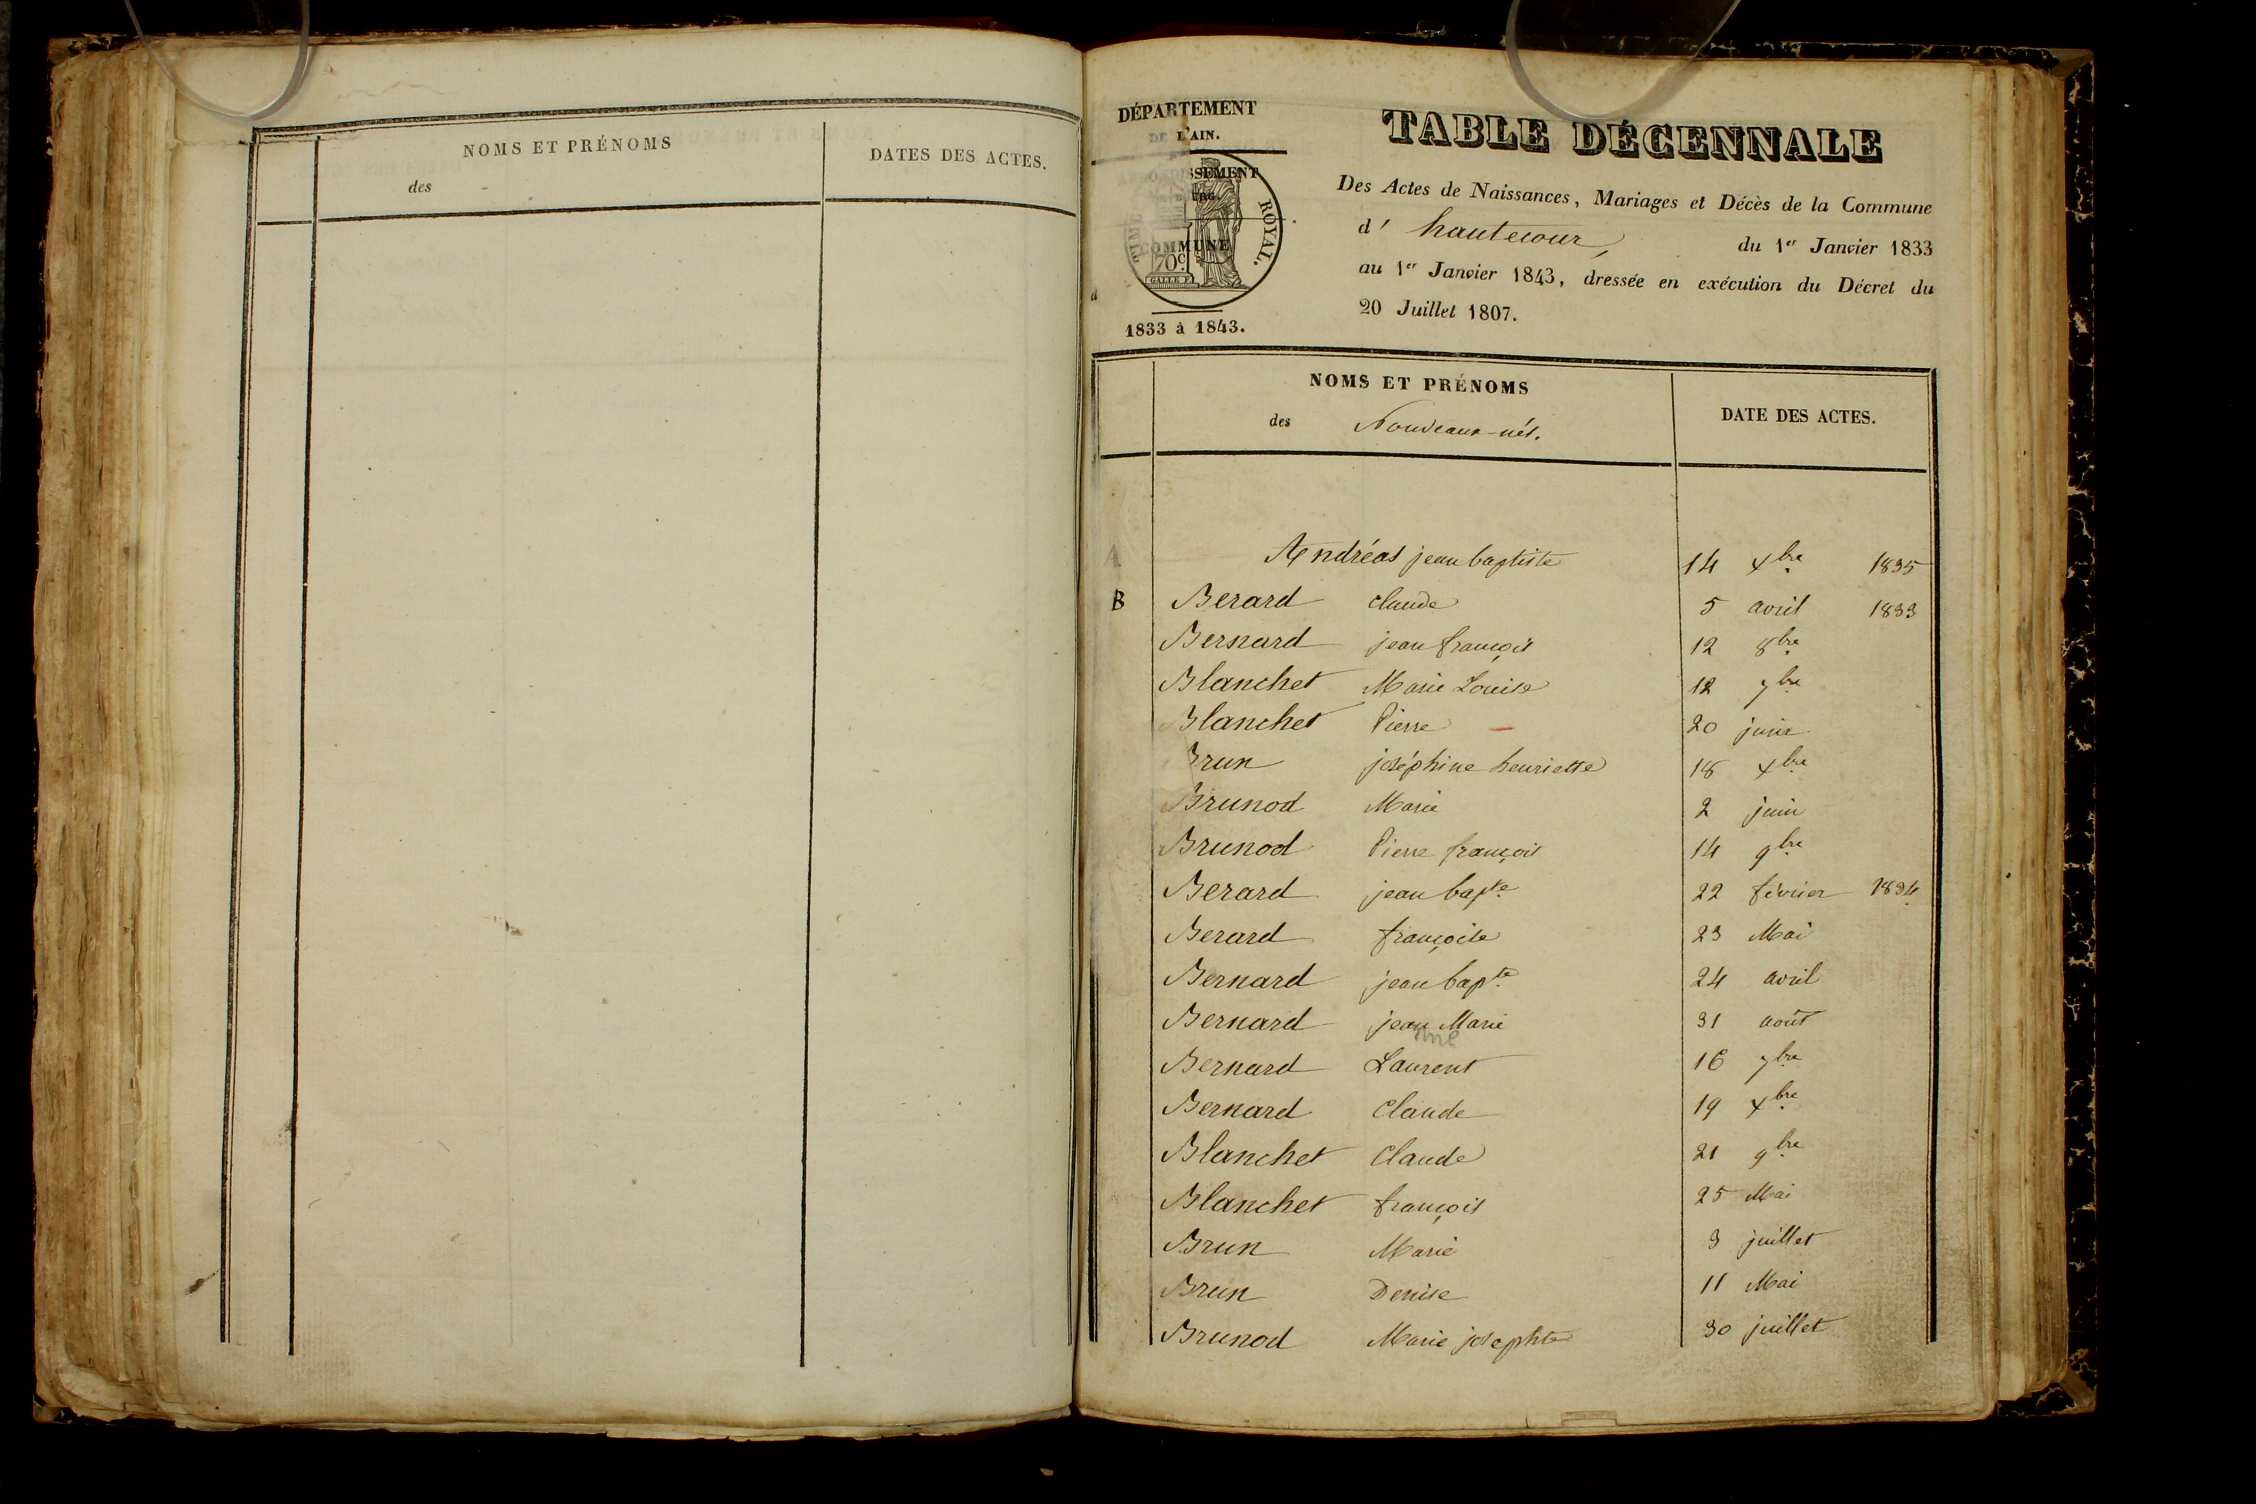 NOMS ET PRÉNOMS
des
DATES DES ACTES.
DÉPARTEMENT
DE L'AIN.
TIMBRE ROYAL.
COMMUNE
70c
1833 à 1843.
TABLE DÉCENNALE
Des Actes de Naissances, Mariages et Décès de la Commune
d' hautecour du 1er Janvier 1833
au 1er Janvier 1843, dressée en exécution du Décret du
20 Juillet 1807.
NOMS ET PRÉNOMS
des Nouveaux-nés.
DATE DES ACTES.
A Andréas jean baptiste 14 xbre 1835
B Berard claude 5 avril 1833
Bernard jean françois 12 8bre
Blanchet Marie Louise 12 7bre
Blanchet Pierre 20 juin
Brun joséphine henriette 18 xbre
Brunod Marie 2 juin
Brunod Pierre françois 14 9bre
Berard jean bapte 22 février 1834
Berard françoise 23 Mai
Bernard jean bapte 24 avril
Bernard jean Marie 31 août
Bernard Laurent 16 7bre
Bernard Claude 19 xbre
Blanchet Claude 21 9bre
Blanchet françois 25 Mai
Brun Marie 3 juillet
Brun Denise 11 Mai
Brunod Marie josephte 30 juillet